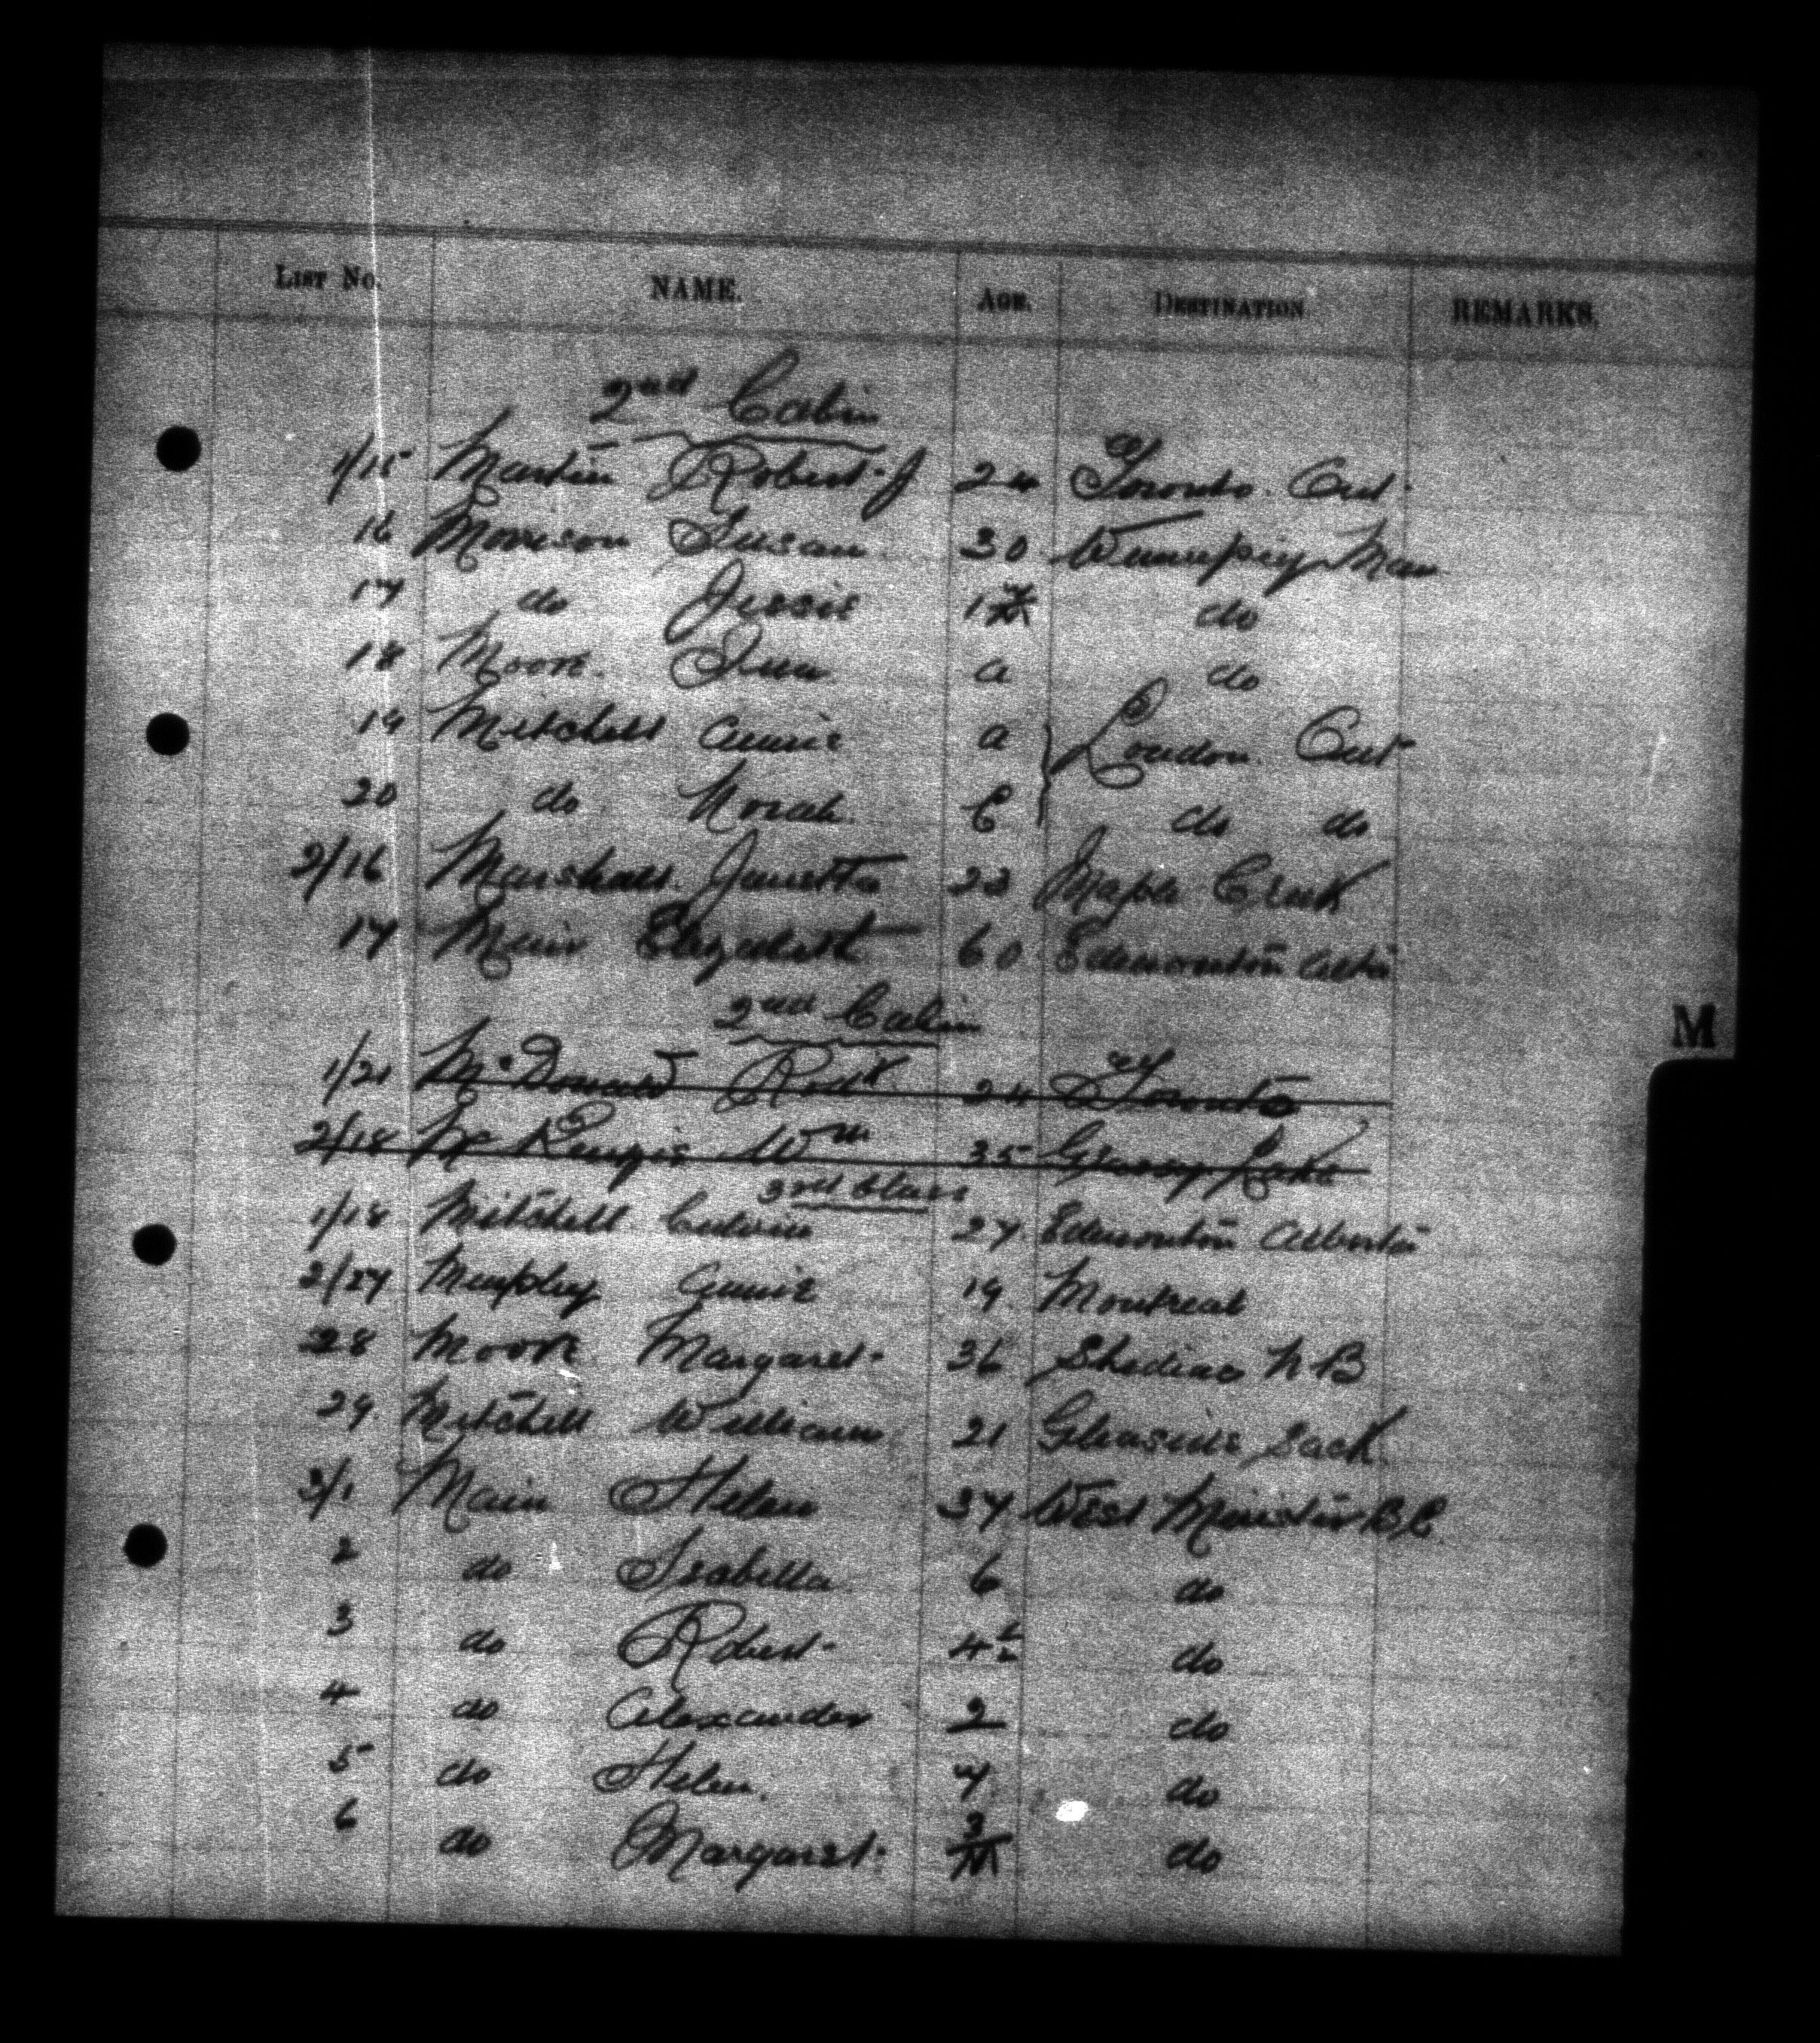 LIST NO. NAME. AGE. DESTINATION REMARKS.
2nd Cabin
1/15 Martin Robert J 24 Toronto. Ont.
16 Morrison Susan 30 Winnipeg Man
17 do Jessie do
18 Moore. a do
19 Mitchell Annie a London. Ont
20 do Norah. C do do
2/16 Marshall Janetta 23 Maple Creek
17 Muir Elizabeth 60 Edmonton Alta
2nd Cabin
M
1/21 McDonald Robt 24 Toronto
2/18 McKenzie Wm 35 Grassy Lake
3rd Class
1/18 Mitchell Edwin 27 Edmonton Alberta
2/27 Murphy Annie 19 Montreal
28 Moore Margaret 36 Shediac N B
29 Mitchell William 21 Sack.
3/1 Main Helen 37 West Minister B.C.
2 do Isabella 6 do
3 do Robert 4½ do
4 do Alexander 2 do
5 do Helen. 7 do
6 do Margaret. 3/M do